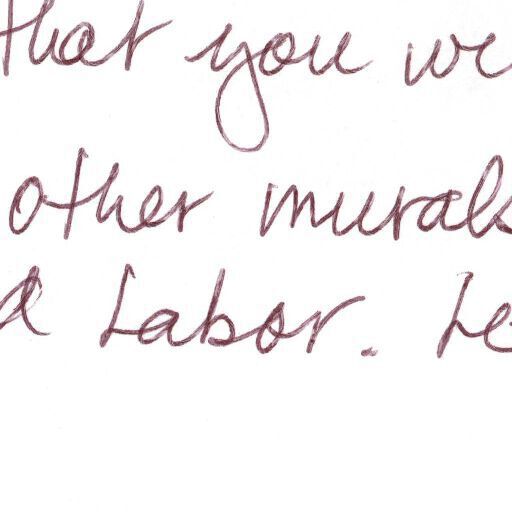 that you we
other murals
d Labor. Le